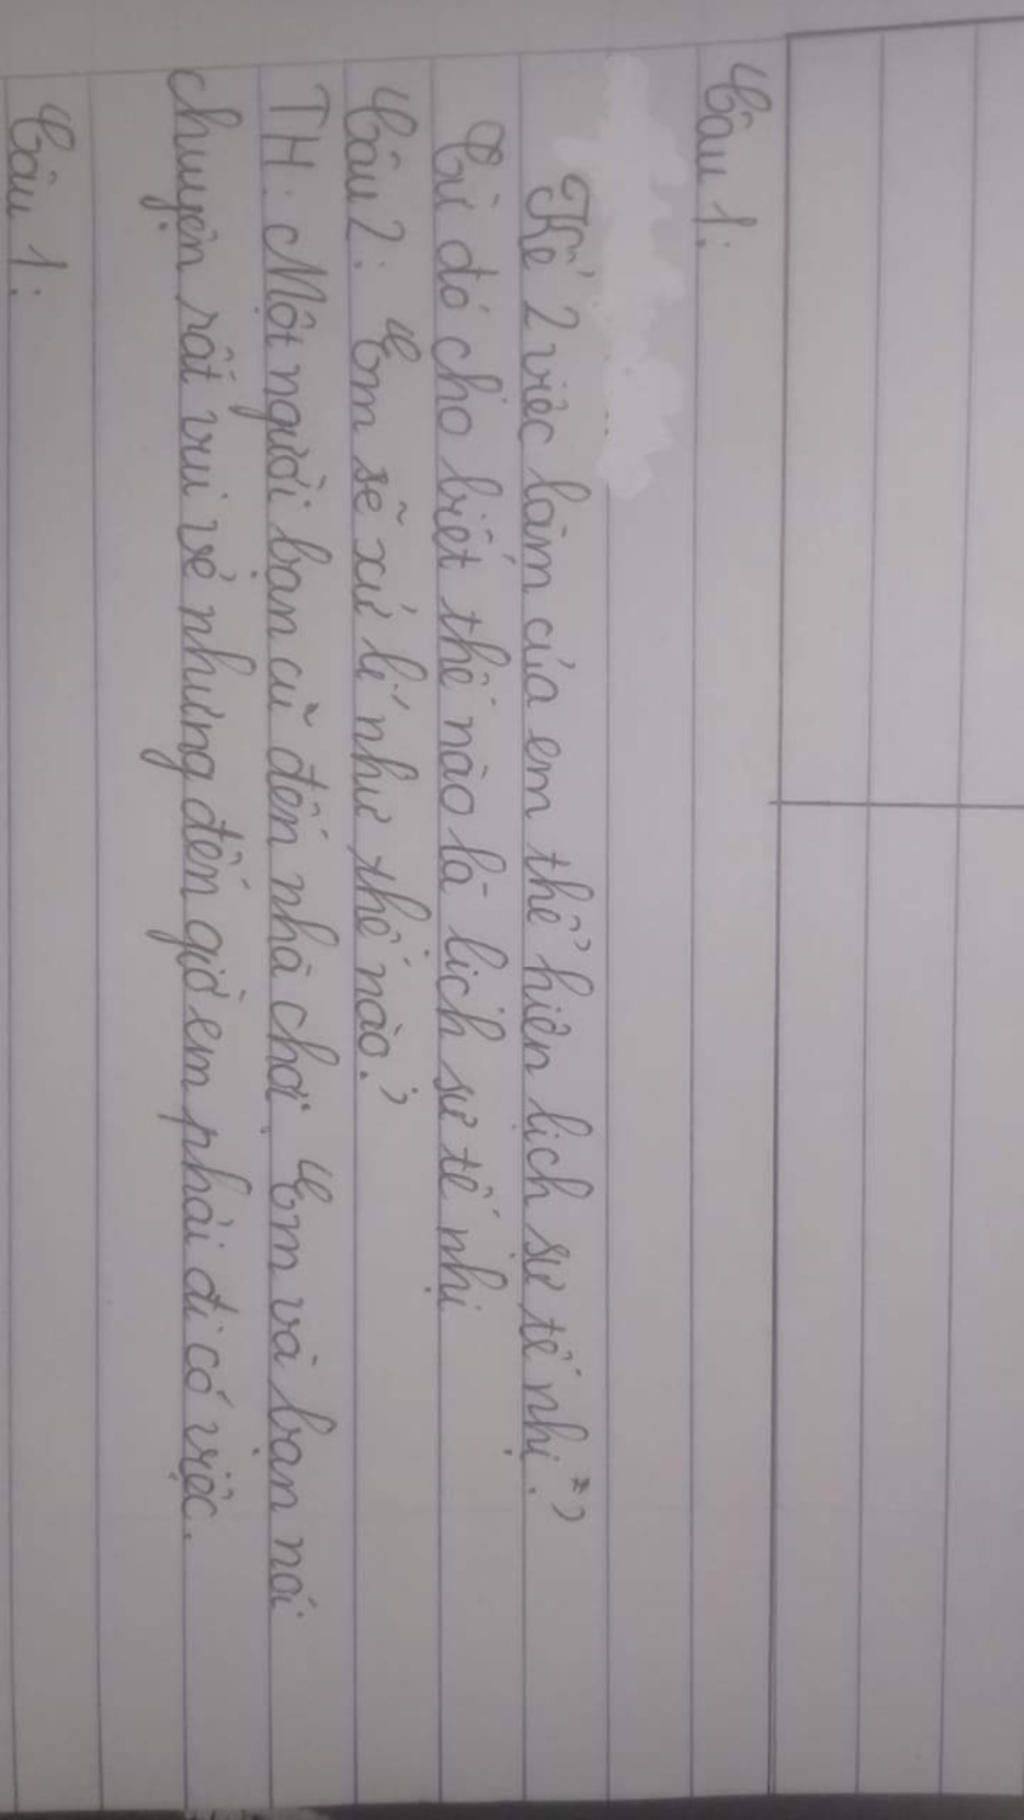 Câu 1:
Kể 2 việc làm của em thể hiện lịch sự tế nhị?
Từ đó cho biết thế nào là lịch sự tế nhị
Câu 2: Em sẽ xử lí như thế nào?
TH: Một người bạn cũ đến nhà chơi. Em và bạn nói
chuyện rất vui vẻ nhưng đến giờ em phải đi có việc.
Câu 1: